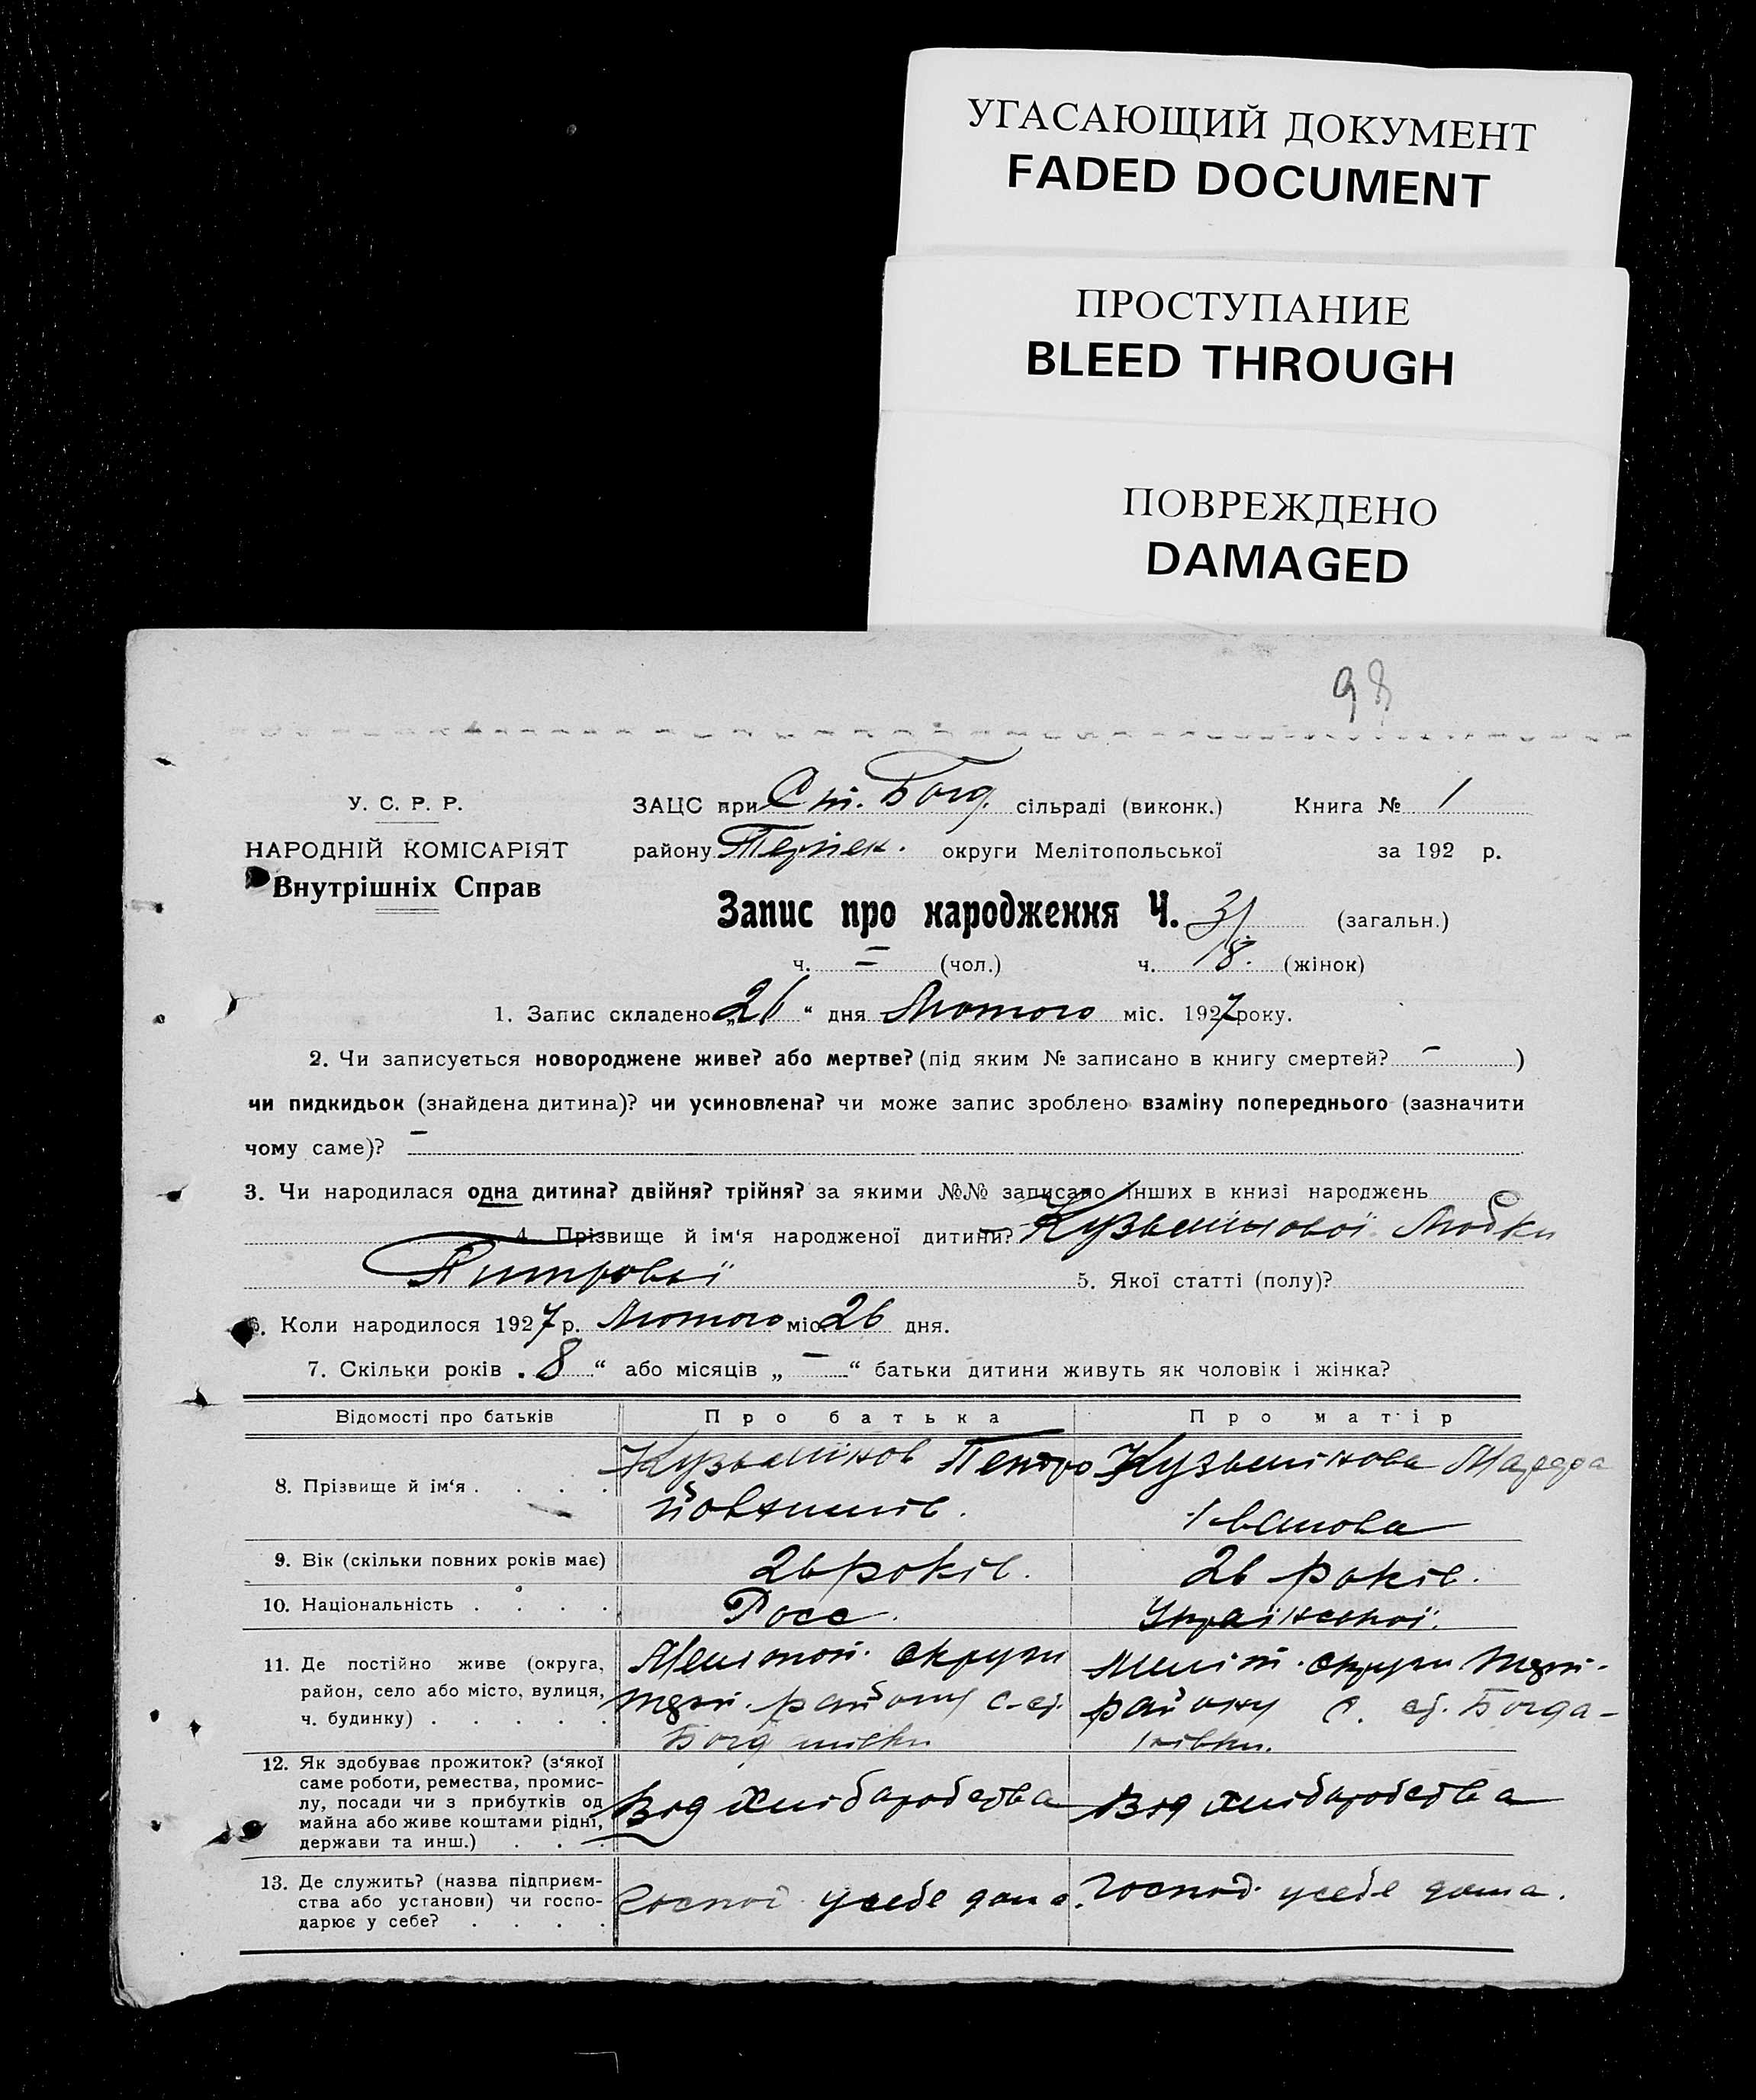 УГАСАЮЩИЙ ДОКУМЕНТ
FADED DOCUMENT
ПРОСТУПАНИЕ
BLEED THROUGH
ПОВРЕЖДЕНО
DAMAGED
98
У. С. Р. Р.
ЗАЦС при Ст. Богд. сільраді (виконк.) Книга № 1
НАРОДНІЙ КОМІСАРІЯТ
району округи Мелітопольської за 192 р.
Внутрішніх Справ
Запис про народження Ч. 31. (загальн.)
ч. = (чол.) ч. 18. (жінок)
1. Запис складено „26“ дня Лютого міс. 1927 року.
2. Чи записується новороджене живе? або мертве? (під яким № записано в книгу смертей? – )
чи пидкидьок (знайдена дитина)? чи усиновлена? чи може запис зроблено взаміну попереднього (зазначити
чому саме)? –
3. Чи народилася одна дитина? двійня? трійня? за якими №№ записано інших в книзі народжень
4. Прізвище й ім‘я народженої дитини? Кузьмінової
5. Якої статті (полу)?
6. Коли народилося 1927 р. Лютого міс. 26 дня.
7. Скільки років „8“ або місяців „ – “ батьки дитини живуть як чоловік і жінка?
Відомості про батьків Про батька Про матір
8. Прізвище й ім‘я . . . . Кузьмінов Петро Кузьмінова
Іванова
9. Вік (скільки повних років має) 26 років. 26 років.
10. Національність . . . . Росс. Української.
11. Де постійно живе (округа, район, село або місто, вулиця, ч. будинку) . . . . .
Мелітоп. округи Меліт. округи
району району с. Богда-
нівки.
12. Як здобуває прожиток? (з‘якої саме роботи, ремества, промислу, посади чи з прибутків од майна або живе коштами рідні, держави та инш.) . . .
Від хліборобства Від хліборобства
13. Де служить? (назва підприємства або установи) чи господарює у себе? . . . .
Господ. у себе дома. Господ. у себе дома.